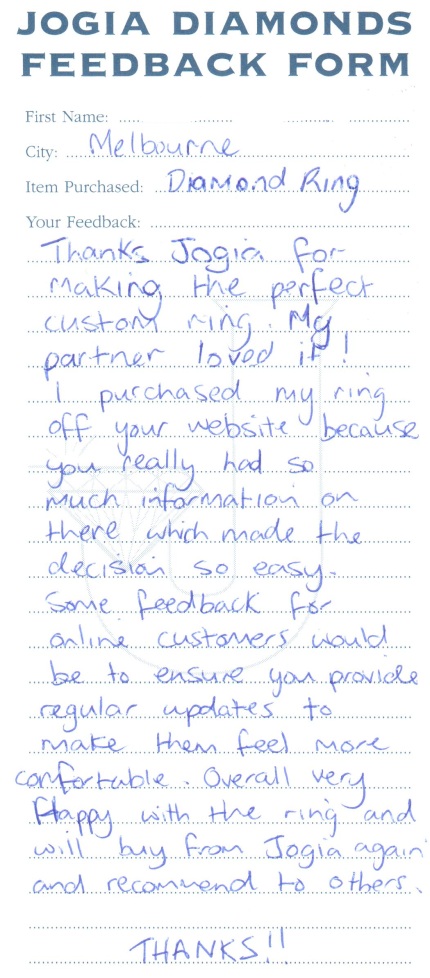 JOGIA DIAMONDS
FEEDBACK FORM
First Name:
City: Melbourne
Item Purchased: Diamond Ring
Your Feedback:
Thanks Jogia for
making the perfect
custom ring. My
partner loved it!
I purchased my ring
off your website because
you really had so
much information on
there which made the
decision so easy.
Some feedback for
online customers would
be to ensure you provide
regular updates to
make them feel more
comfortable. Overall very
Happy with the ring and
will buy from Jogia again
and recommend to others.
THANKS!!